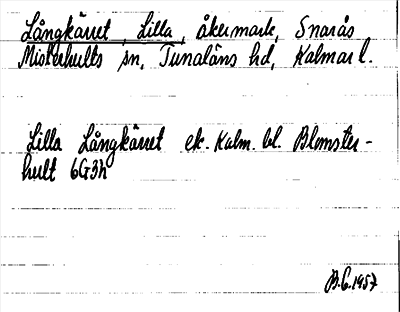 Långkärret, Lilla, åkermark, Snarås
Misterhults sn, Tunaläns hd, Kalmar l.
Lilla Långkärret ek. Kalm. bl. Blomster-
hult 6G3h
B.E. 1957